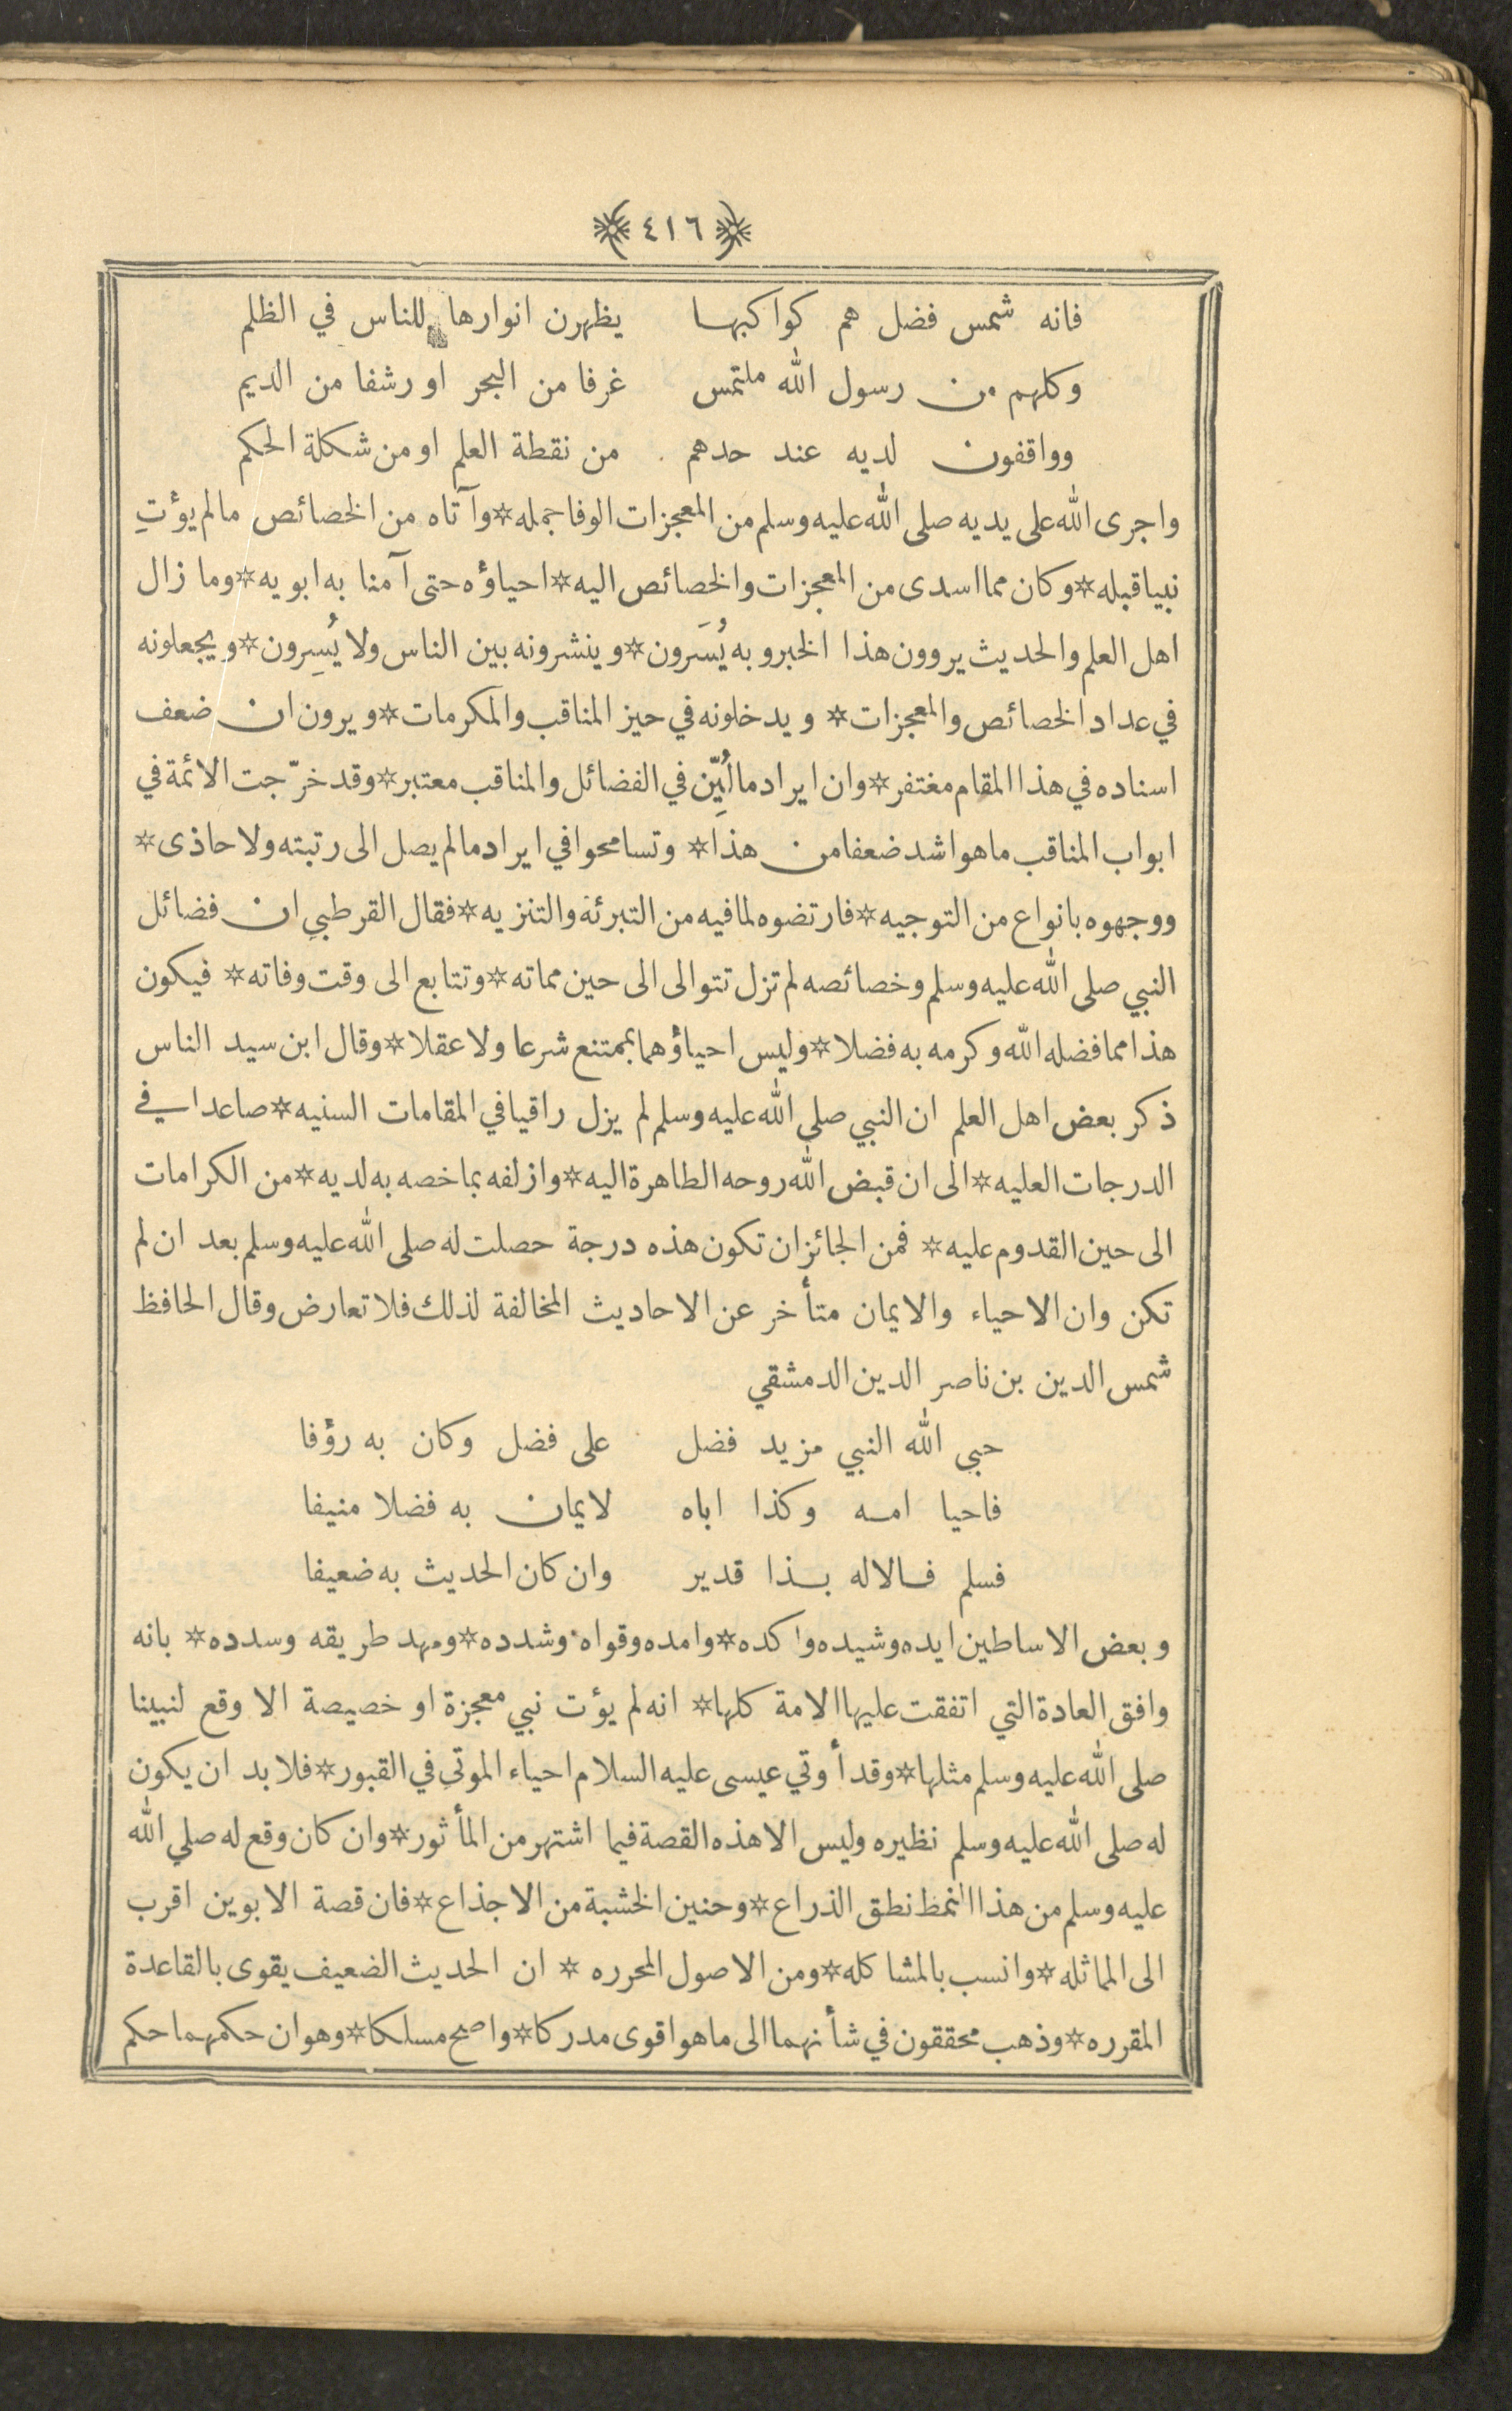 ٤١٦
فانه شمس فضل هم كواكبها يظهرن انوارها للناس في الظلم
وكلهم من رسول الله ملتمس غرفا من البحر او رشفا من الديم
وواقفون لديه عند حدهم من نقطة العلم او من شكلة الحكم
واجرى الله على يديه صلى الله عليه وسلم من المعجزات الوفا جمله * وآتاه من الخصائص مالم يؤتِ
نبيا قبله * وكان مما اسدى من المعجزات والخصائص اليه * احياؤه حتى آمنا به ابويه * وما زال
اهل العلم والحديث يروون هذا الخبر وبه يُسَرون * وينشرونه بين الناس ولا يُسِرون * ويجعلونه
في عداد الخصائص والمعجزات * ويدخلونه في حيز المناقب والمكرمات * ويرون ان ضعف
اسناده في هذا المقام مغتفر * وان ايراد ما لُيِّن في الفضائل والمناقب معتبر * وقد خرّجت الائمة في
ابواب المناقب ما هو اشد ضعفا من هذا * وتسامحوا في ايراد مالم يصل الى رتبته ولا حاذى *
ووجهوه بانواع من التوجيه * فارتضوه لما فيه من التبرئة والتنزيه * فقال القرطبي ان فضائل
النبي صلى الله عليه وسلم وخصائصه لم تزل تتوالى الى حين مماته * وتتابع الى وقت وفاته * فيكون
هذا مما فضله الله وكرمه به فضلا * وليس احياؤهما بممتنع شرعا ولا عقلا * وقال ابن سيد الناس
ذكر بعض اهل العلم ان النبي صلى الله عليه وسلم لم يزل راقيا في المقامات السنيه * صاعدا في
الدرجات العليه * الى ان قبض الله روحه الطاهرة اليه * وازلفه بما خصه به لديه * من الكرامات
الى حين القدوم عليه * فمن الجائز ان تكون هذه درجة حصلت له صلى الله عليه وسلم بعد ان لم
تكن وان الاحياء والايمان متأخر عن الاحاديث المخالفة لذلك فلا تعارض وقال الحافظ
شمس الدين بن ناصر الدين الدمشقي
حبي الله النبي مزيد فضل على فضل وكان به رؤفا
فاحيا امه وكذا اباه لايمان به فضلا منيفا
فسلم فالاله بذا قدير وان كان الحديث به ضعيفا
وبعض الاساطين ايده وشيده واكده * وامده وقواه وشدده * ومهد طريقه وسدده * بانه
وافق العادة التي اتفقت عليها الامة كلها * انه لم يؤت نبي معجزة او خصيصة الا وقع لنبينا
صلى الله عليه وسلم مثلها * وقد أوتي عيسى عليه السلام احياء الموتى في القبور * فلا بد ان يكون
له صلى الله عليه وسلم نظيره وليس الا هذه القصة فيما اشتهر من المأثور * وان كان وقع له صلي الله
عليه وسلم من هذا النمط نطق الذراع * وحنين الخشبة من الاجذاع * فان قصة الابوين اقرب
الى المماثله * وانسب بالمشاكله * ومن الاصول المحرره * ان الحديث الضعيف يقوى بالقاعدة
المقرره * وذهب محققون في شأنهما الى ما هو اقوى مدركا * واصح مسلكا * وهو ان حكمهما حكم